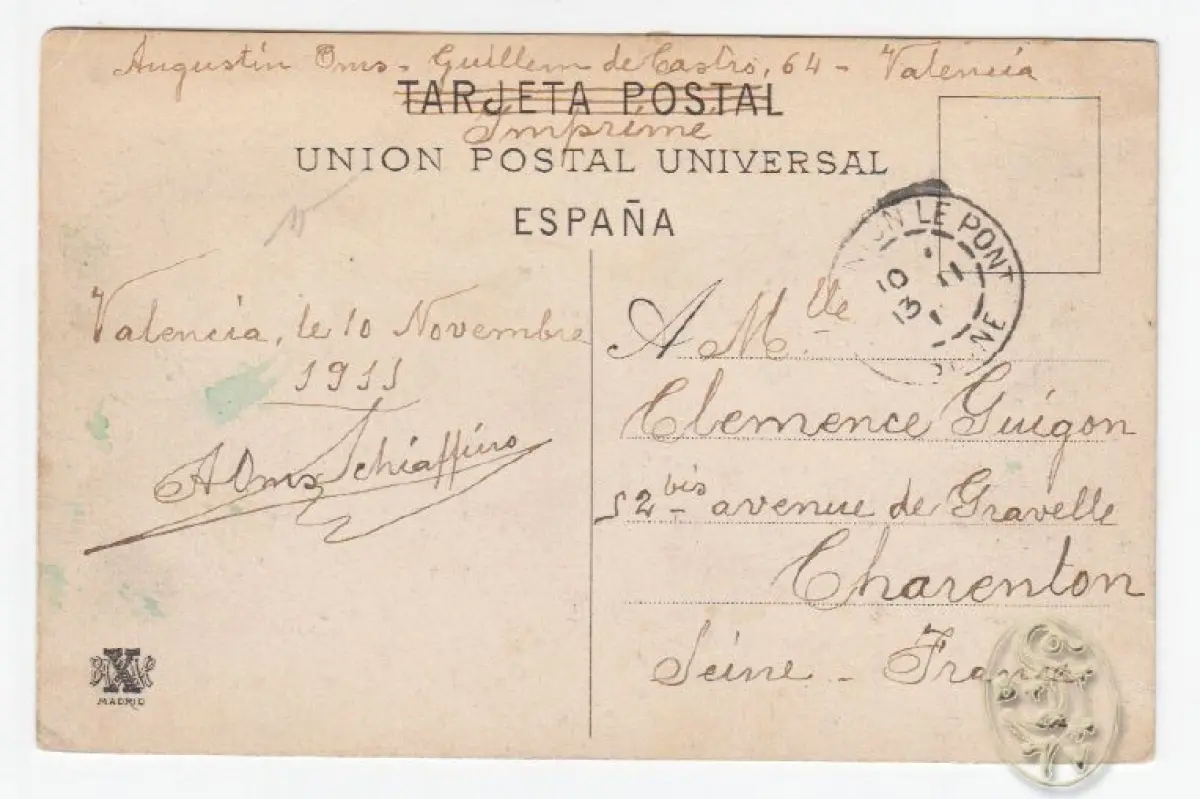 Augustin Oms - Guillem de Castro, 64 - Valencia
TARJETA POSTAL
Imprimé
UNION POSTAL UNIVERSAL
ESPAÑA
LE PONT
10
13 - 11
Valencia, le 10 Novembre
1911
A Oms Schiaffino
A M.lle
Clemence Guigon
52 bis avenue de Gravelle
Charenton
Seine - France
MADRID